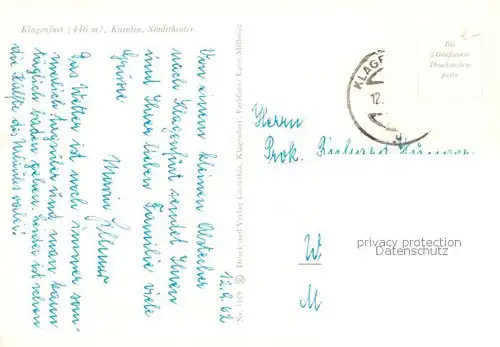 Klagenfurt (446 m), Kaernten, Stadttheater
12.9.62
Von einem kleinen Abstecher
nach Klagenfurt sendet Ihnen
und Ihrer lieben Familie viele
Grüße
Maria
Das Wetter ist noch immer som-
merlich hezunter und man kann
täglich baden gehen. Leider ist schon
die Hälfte des Urlaubs vorbei!
Nr. 1169
Druck und Verlag Carinthia, Klagenfurt; Farbfoto: Lepo-Millonig
Bis
5 Grußworte
Drucksachen-
porto
KLAGENF
12.
Herrn
Prok. Richard
W
M
privacy protection
Datenschutz
2-